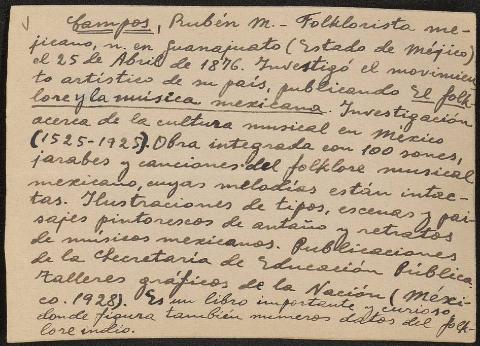 Campos, Rubén M. - Folklorista me-
jicano, n. en Guanajuato (Estado de Méjico)
el 25 de Abril de 1876. Investigó el movimien-
to artístico de su país, publicando El folk-
lore y la música mexicana. Investigación
acerca de la cultura musical en México
(1525-1925). Obra integrada con 100 sones,
jarabes y canciones del folklore musical
mexicano, cuyas melodías están intac-
tas. Ilustraciones de tipos, escenas y pai-
sajes pintorescos de antaño y retratos
de músicos mexicanos. Publicaciones
de la Secretaría de Educación Pública.
Talleres gráficos de la Nación (Méxi-
co. 1928). Es un libro importante y curioso
donde figura también numeros datos del folk-
lore indio.